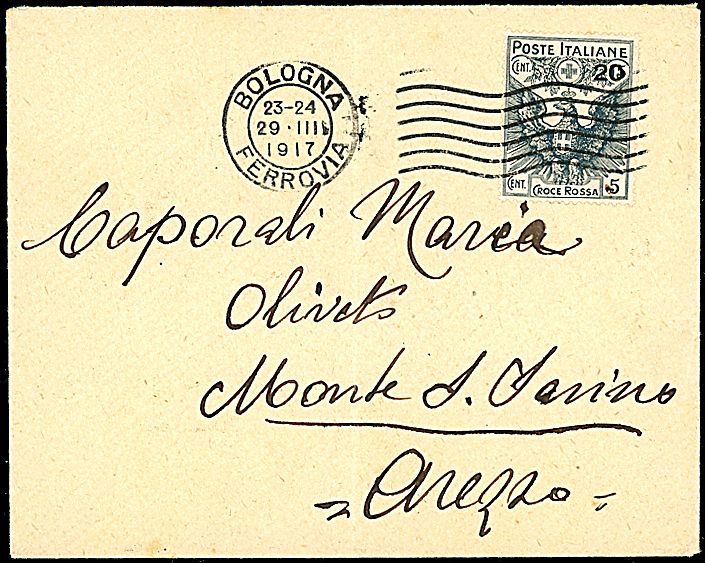 POSTE ITALIANE
CENT. 20
BOLOGNA
23-24
29·III
1917
FERROVIA
CENT. 5
CROCE ROSSA
Caporali Maria
Oliveto
Monte S. Savino
=Arezzo=